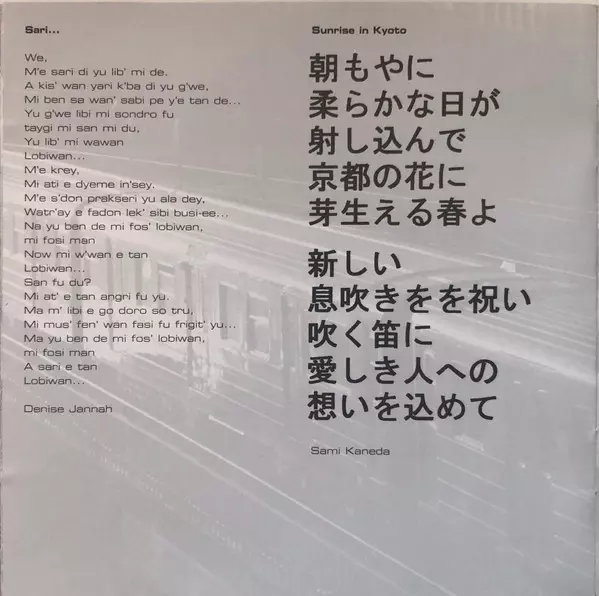 Sari...
We,
M'e sari di yu lib' mi de.
A kis' wan yari k'ba di yu g'we,
Mi ben sa wan' sabi pe y'e tan de...
Yu g'we libi mi sondro fu
taygi mi san mi du,
Yu lib' mi wawan
Lobiwan...
M'e krey,
Mi ati e dyeme in'sey.
M'e s'don prakseri yu ala dey,
Watr'ay e fadon lek' sibi busi-ee...
Na yu ben de mi fos' lobiwan,
mi fosi man
Now mi w'wan e tan
Lobiwan...
San fu du?
Mi at' e tan angri fu yu.
Ma m' libi e go doro so tru,
Mi mus' fen' wan fasi fu frigit' yu...
Ma yu ben de mi fos' lobiwan,
mi fosi man
A sari e tan
Lobiwan...
Denise Jannah
Sunrise in Kyoto
朝もやに
柔らかな日が
射し込んで
京都の花に
芽生える春よ
新しい
息吹きをを祝い
吹く笛に
愛しき人への
想いを込めて
Sami Kaneda